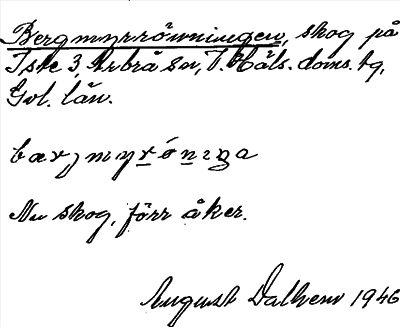 Bergmyrrövningen, skog på
Iste 3, Arbrå sn, V. Häls. doms. tg,
Gvl. län.
bærjmyrónıŋa
Nu skog, förr åker.
August Dalhem 1946